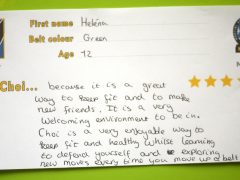 First name Helena
Belt colour Green
Age 12
Choi... because it is a great
way to keep fit and to make
new friends. It is a very
Welcoming environment to be in.
Choi is a very enjoyable way to
keep fit and healthy whilst learning
to defend yourself and exploring
new moves every time you move up a belt